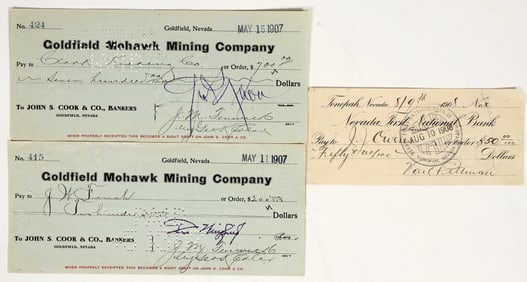 No. 424 Goldfield, Nevada MAY 16 1907
Goldfield Mohawk Mining Company
Pay to Co. or Order, $700.00
Seven hundred Dollars
To JOHN S. COOK & CO., BANKERS
GOLDFIELD, NEVADA
J. M. Fenwick
SEC'Y
WHEN PROPERLY RECEIPTED THIS BECOMES A SIGHT DRAFT ON JOHN S. COOK & CO.
No. 415 Goldfield, Nevada MAY 11 1907
Goldfield Mohawk Mining Company
Pay to J. W. or Order, $200
Two hundred Dollars
To JOHN S. COOK & CO., BANKERS
GOLDFIELD, NEVADA
J. M. Fenwick
SEC'Y
WHEN PROPERLY RECEIPTED THIS BECOMES A SIGHT DRAFT ON JOHN S. COOK & CO.
Tonopah, Nevada 8/9th 1908 No.
Nevada First National Bank
AUG 10 1908
Pay to J. J. Owen or order $50
Fifty Dollars
Key Pittman